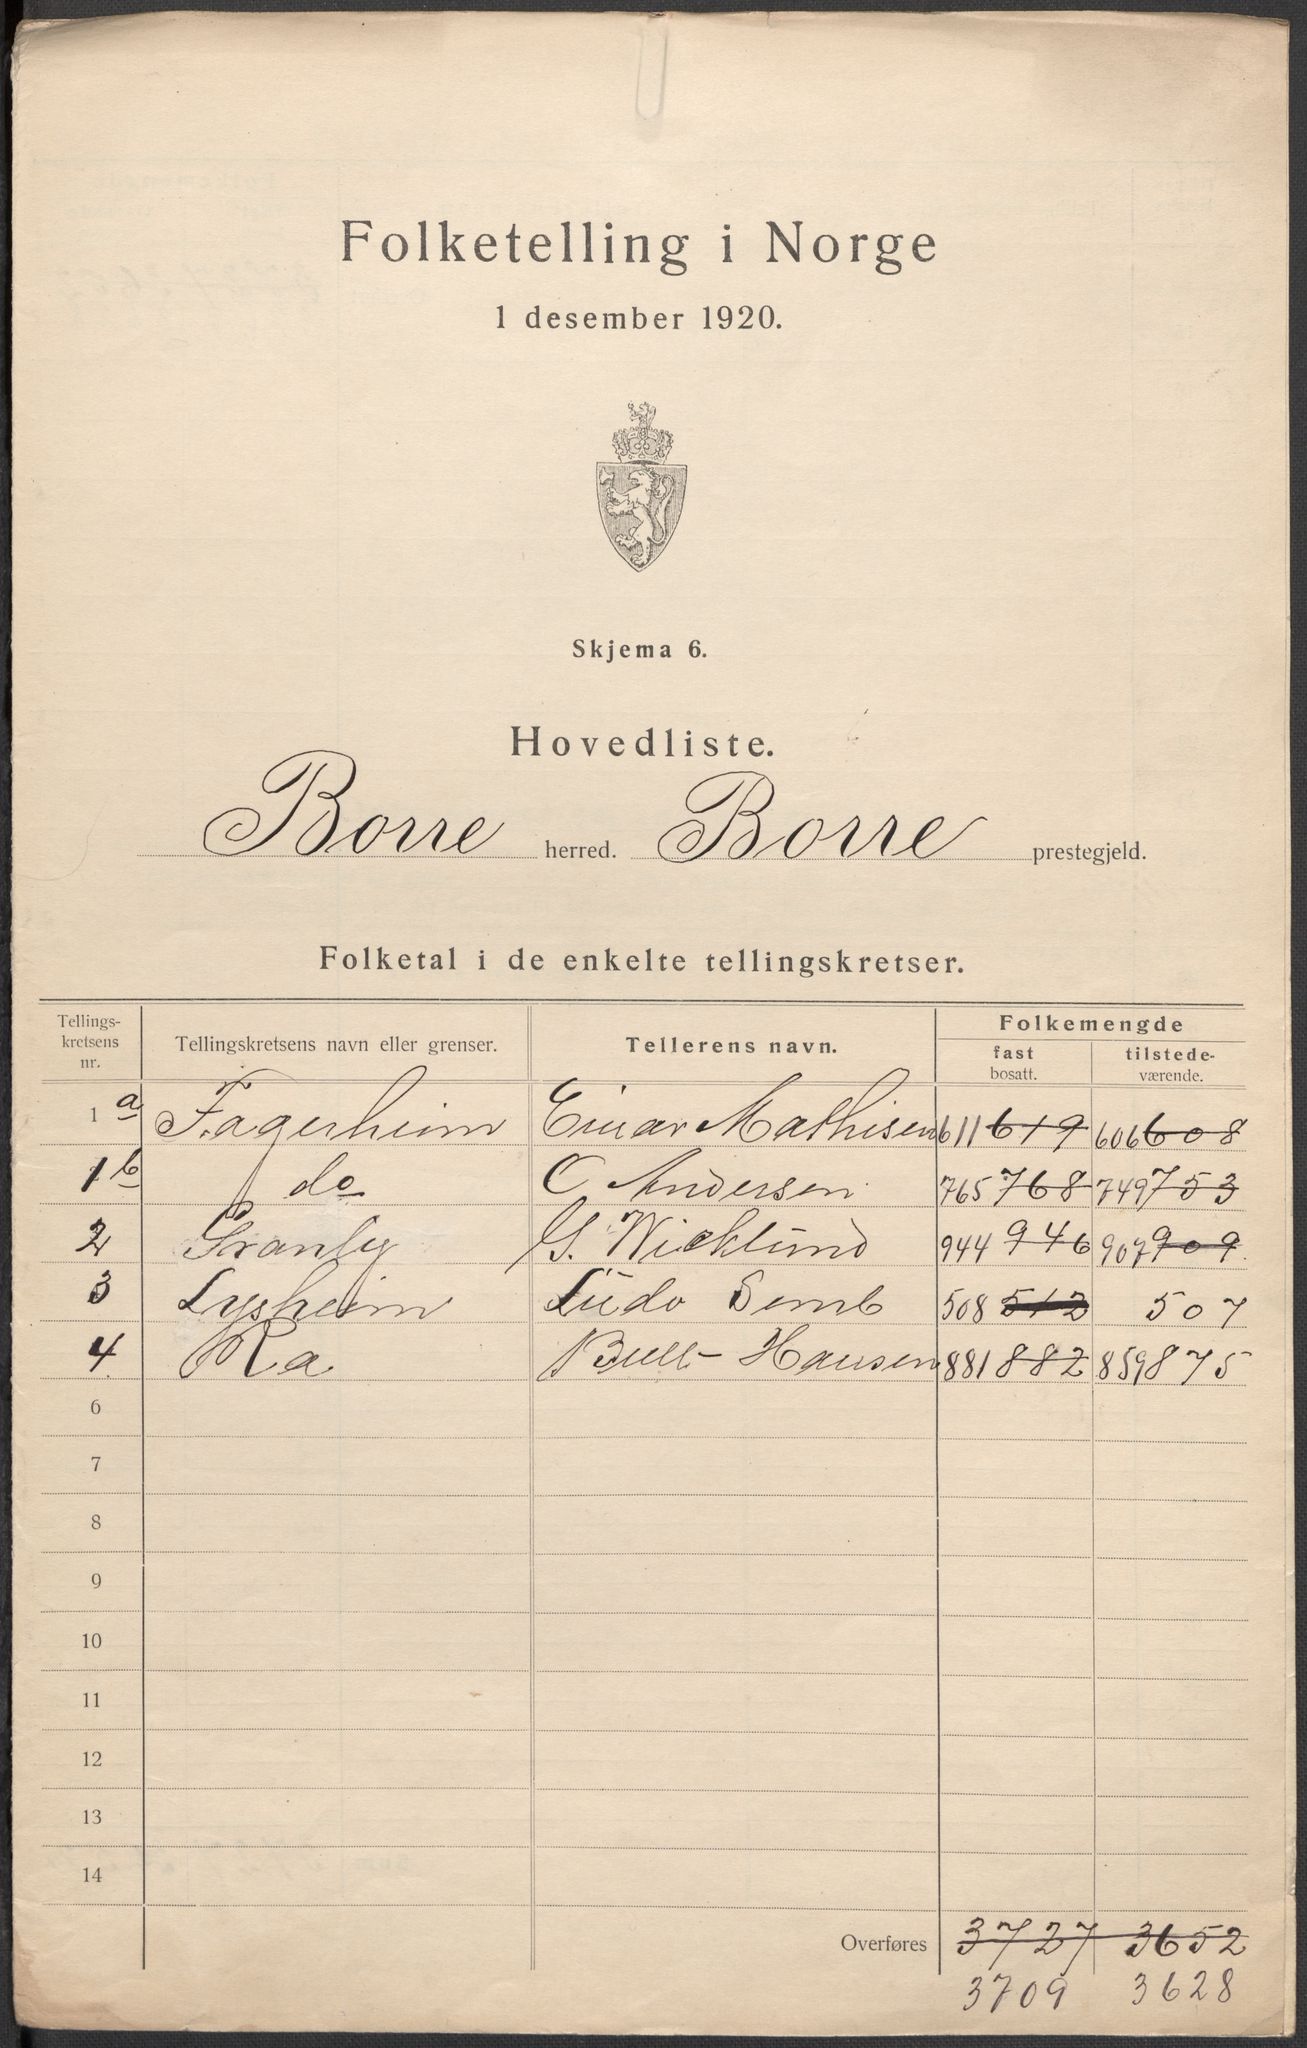 Folketelling i Norge
1 desember 1920.
Skjema 6.
Hovedliste.
Borre herred. Borre prestegjeld.
Folketal i de enkelte tellingskretser.
Tellings-
kretsens
nr.
Tellingskretsens navn eller grenser.
Tellerens navn.
Folkemengde
fast
bosatt.
tilstede-
værende.
1 a Fagerheim Einar Mathisen 611 619 606 608
1 b do C Andersen 765 768 749 753
2 Granly G. Wicklund 944 946 907 909
3 Lysheim Ludv Semb 508 512 507
4 Ra Bull-Hansen 881 882 859 875
6
7
8
9
10
11
12
13
14
Overføres 3727 3652
3709 3628